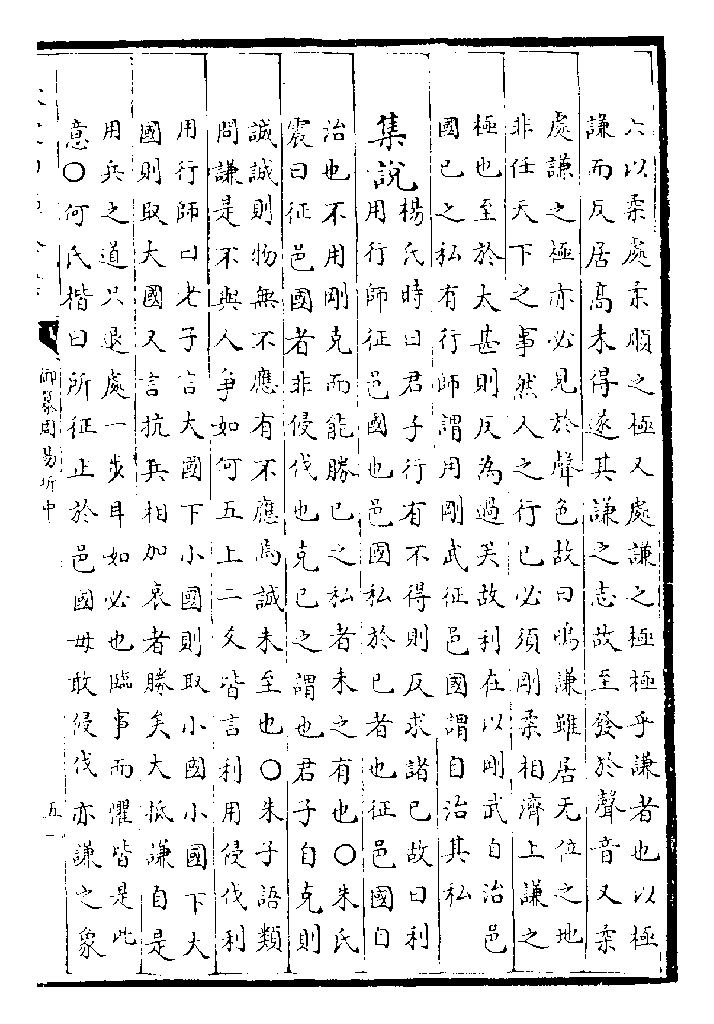 六以柔處柔順之極又處謙之極極乎謙者也以極
謙而反居高未得遂其謙之志故至發於聲音又柔
處謙之極亦必見於聲色故曰鳴謙雖居无位之地
非任天下之事然人之行已必須剛柔相濟上謙之
極也至於太甚則反為過矣故利在以剛武自治邑
國已之私有行師謂用剛武征邑國謂自治其私
集說
楊氏時曰君子行有不得則反求諸已故曰利
用行師征邑國也邑國私於已者也征邑國自
治也不用剛克而能勝已之私者未之有也〇朱氏
震曰征邑國者非侵伐也克已之謂也君子自克則
誠誠則物無不應有不應焉誠未至也〇朱子語類
問謙是不與人爭如何五上二爻皆言利用侵伐利
用行師曰老子言大國下小國則取小國小國下大
國則取大國又言抗兵相加哀者勝矣大抵謙自是
用兵之道只退處一步耳如必也臨事而懼皆是此
意〇何氏楷曰所征止於邑國毋敢侵伐亦謙之象
御纂周易折中
五